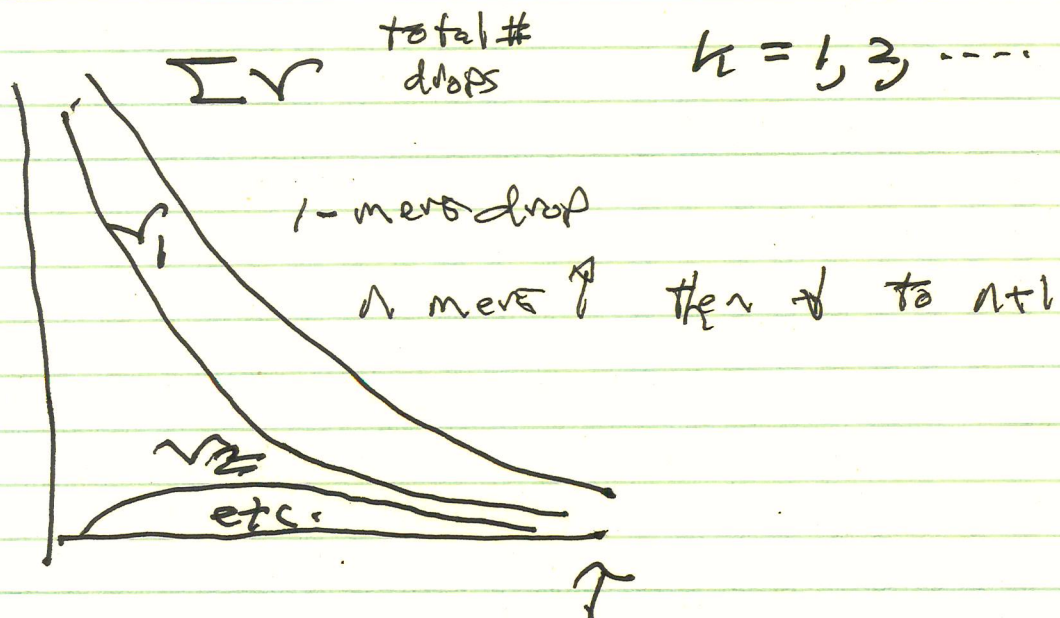 Σν total #
drops
k = 1, 2, ....
ν1
1-mers drop
n mers ↑ then ↓ to n+1
ν2
etc.
τ